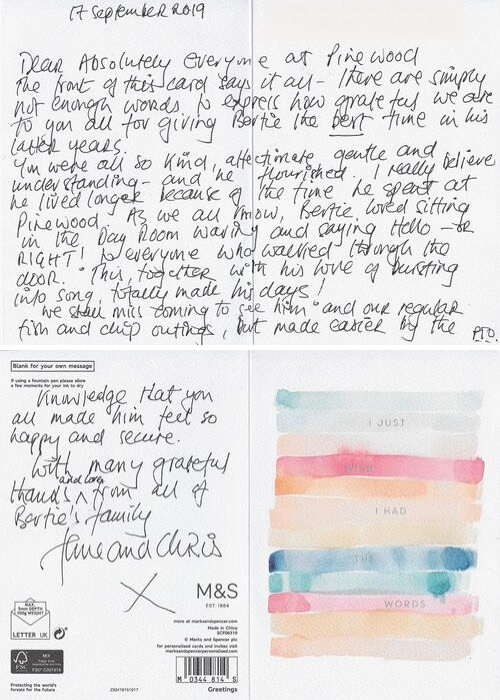 17 September 2019
Dear Absolutely Everyone at Pinewood
The front of this card says it all - there are simply
not enough words to express how grateful we are
to you all for giving Bertie the best time in his
latter years.
You were all so kind, affectionate, gentle and
understanding - and he flourished. I really believe
he lived longer because of the time he spent at
Pinewood. As we all know, Bertie loved sitting
in the Day Room waving and saying Hello - or
RIGHT! to everyone who walked through the
door. This, together with his love of bursting
into song, totally made his days!
We shall miss coming to see him and our regular
fish and chip outings, but made easier by the
P.T.O.
Blank for your own message
If using a fountain pen please allow
a few moments for your ink to dry
Knowledge that you
all made him feel so
happy and secure.
With many grateful
thanks and love from all of
Bertie's family
Jane and Chris
X
M&S
EST. 1884
more at marksandspencer.com
Made in China
SCF06310
© Marks and Spencer plc
for personalised cards and invites visit
marksandspencerpersonalised.com
MAX.
5mm DEPTH
100g WEIGHT
LETTER UK
MIX
FSC
FSC® C007319
M 0344 814 S
Protecting the world's
forests for the future
23041915/1917
Greetings
I JUST
WISH
I HAD
THE
WORDS